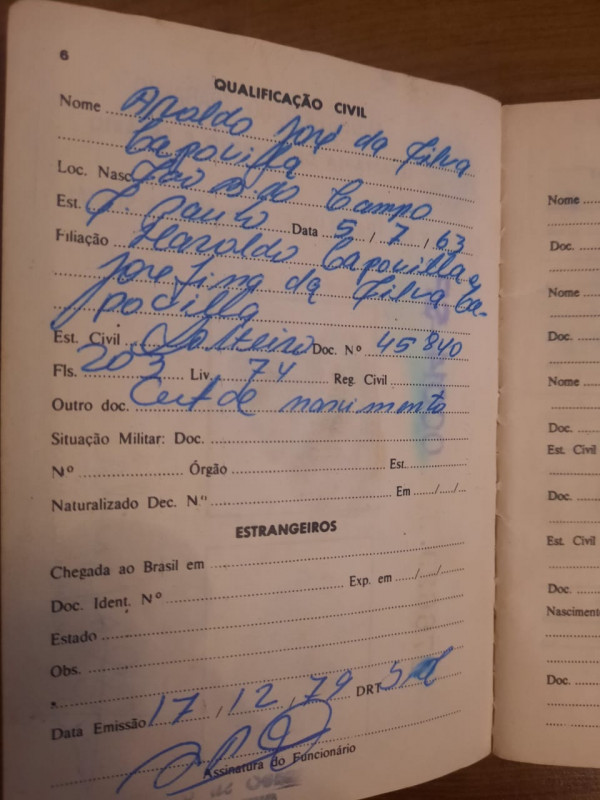 6
QUALIFICAÇÃO CIVIL
Nome Aroldo José da Silva
Capovilla
Loc. Nasc. São B. do Campo
Est. S. Paulo Data 5 / 7 / 63
Filiação Haroldo Capovilla e
Josefina da Silva Ca-
povilla
Est. Civil Solteiro Doc. Nº 45840
Fls. 203 Liv. 74 Reg. Civil
Outro doc. Cert de nascimento
Situação Militar: Doc.
Nº Órgão Est.
Naturalizado Dec. N.º Em / /
ESTRANGEIROS
Chegada ao Brasil em
Doc. Ident. Nº Exp. em / /
Estado
Obs.
Data Emissão 17 / 12 / 79 DRT
Assinatura do Funcionário
Nome
Doc.
Nome
Doc.
Nome
Doc.
Est. Civil
Doc.
Est. Civil
Doc.
Nascimento
Doc.